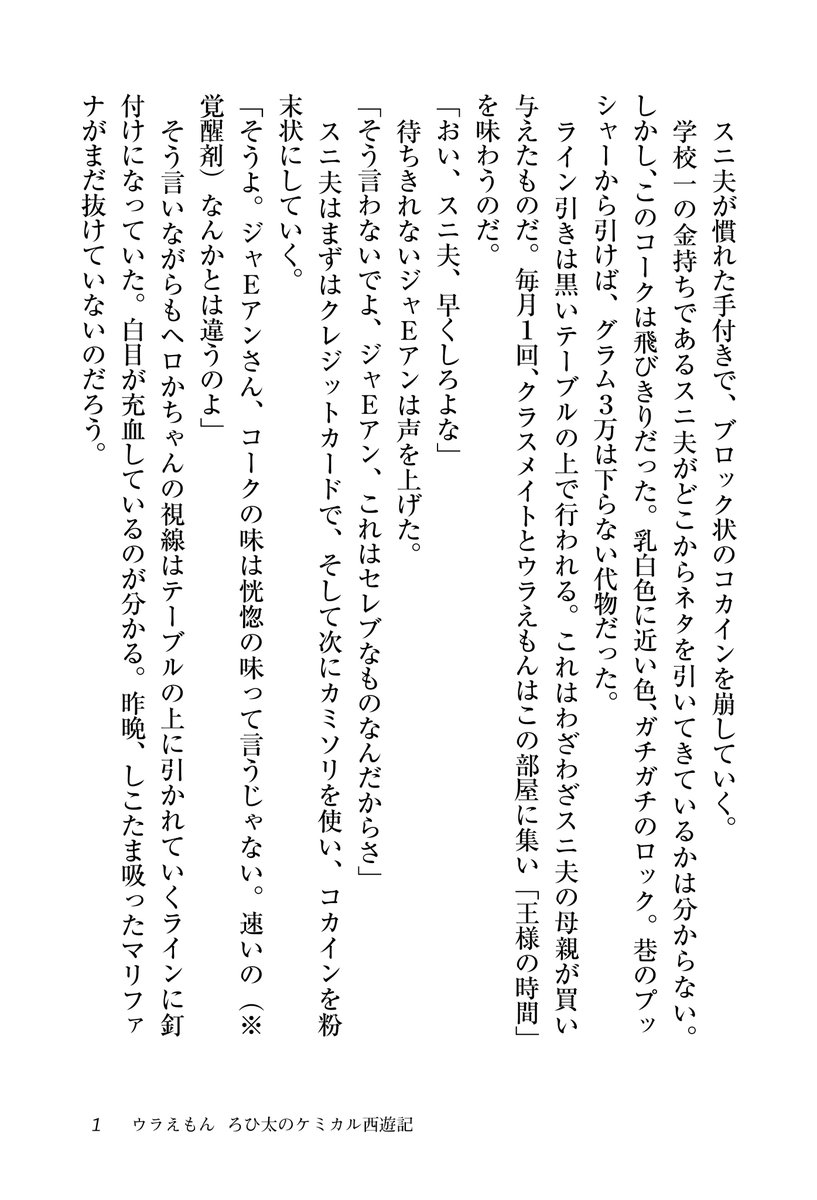 スニ夫が慣れた手付きで、ブロック状のコカインを崩していく。
学校一の金持ちであるスニ夫がどこからネタを引いてきているかは分からない。
しかし、このコークは飛びきりだった。乳白色に近い色、ガチガチのロック。巷のプッ
シャーから引けば、グラム3万は下らない代物だった。
ライン引きは黒いテーブルの上で行われる。これはわざわざスニ夫の母親が買い
与えたものだ。毎月1回、クラスメイトとウラえもんはこの部屋に集い「王様の時間」
を味わうのだ。
「おい、スニ夫、早くしろよな」
待ちきれないジャEアンは声を上げた。
「そう言わないでよ、ジャEアン、これはセレブなものなんだからさ」
スニ夫はまずはクレジットカードで、そして次にカミソリを使い、コカインを粉
末状にしていく。
「そうよ。ジャEアンさん、コークの味は恍惚の味って言うじゃない。速いの（※
覚醒剤）なんかとは違うのよ」
そう言いながらもヘロかちゃんの視線はテーブルの上に引かれていくラインに釘
付けになっていた。白目が充血しているのが分かる。昨晩、しこたま吸ったマリファ
ナがまだ抜けていないのだろう。
1 ウラえもん ろひ太のケミカル西遊記